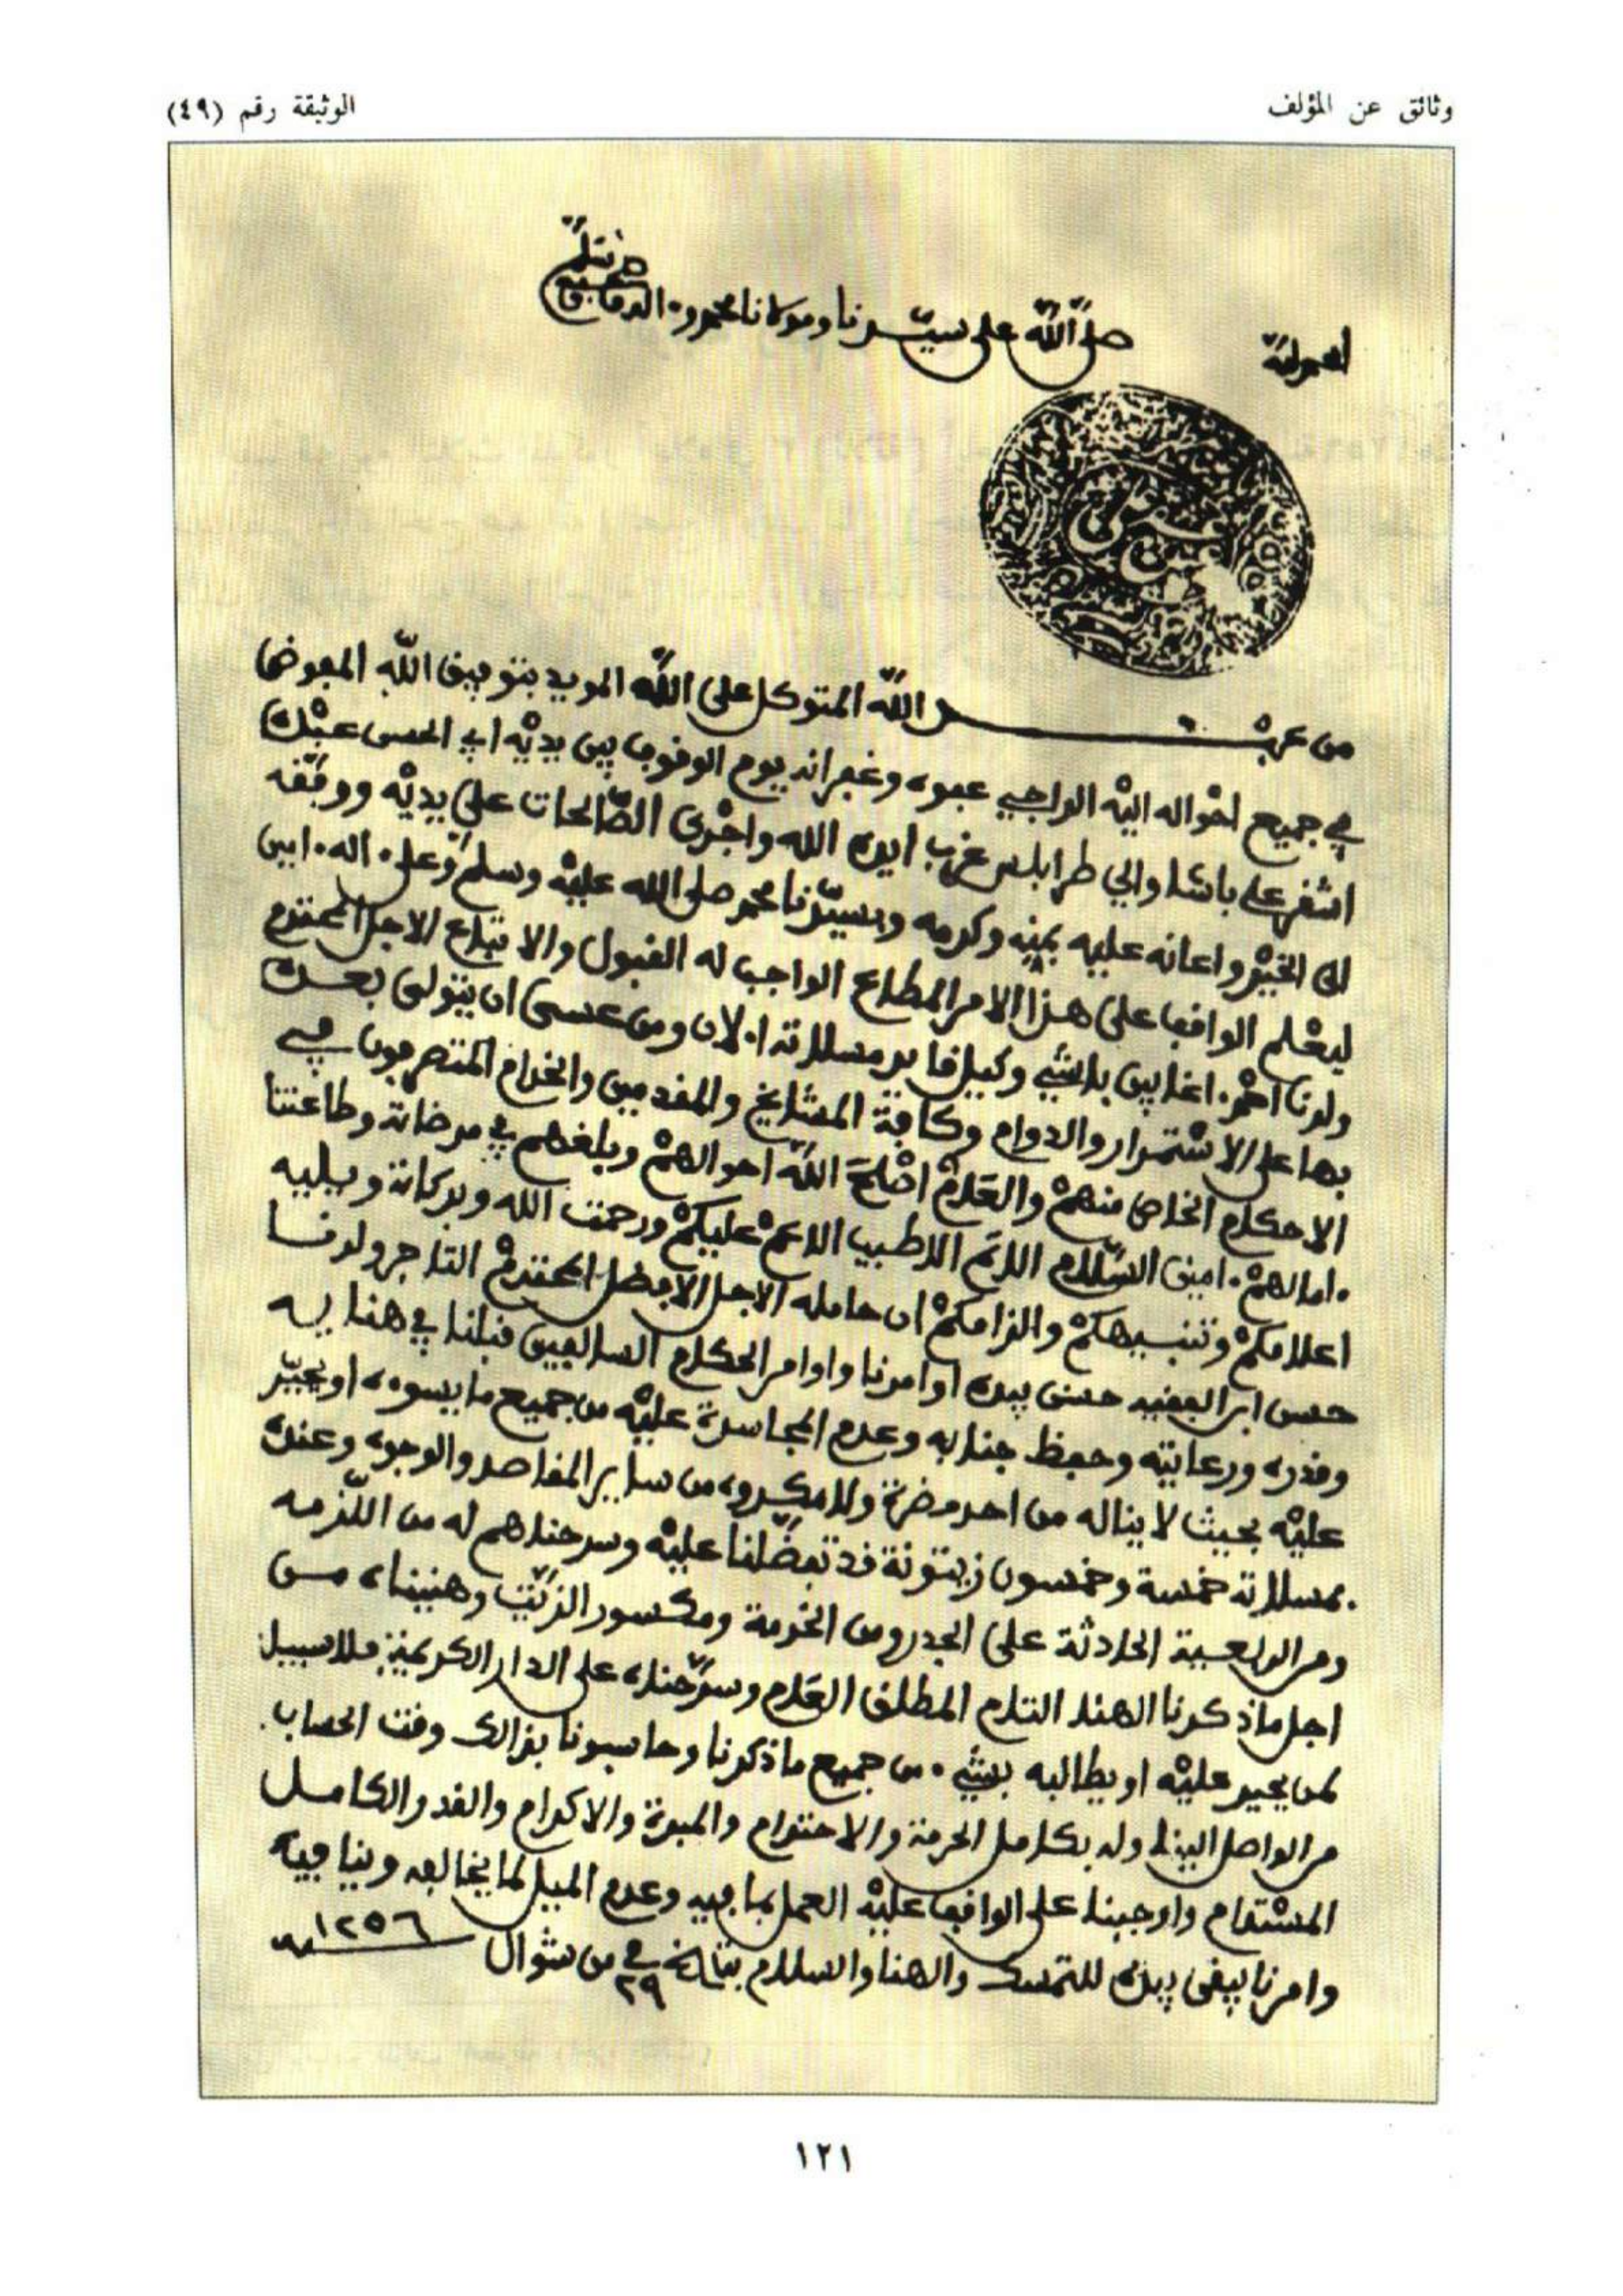 وثائق عن المؤلف
الوثيقة رقم (٤٩)
الحمد لله
صلى الله على سيدنا ومولانا محمد وءاله
من عبد الله المتوكل على الله المويد بتوفيق الله المفوض
في جميع احواله اليه الراجي عفوه وغفرانه يوم الوقوف بين يديه ابي الحسن عبده
اشقر علي باشا والي طرابلس غرب ايده الله واجرى الصالحات على يديه ووفقه
الى الخير واعانه عليه بمنه وكرمه وبسيدنا محمد صلى الله عليه وسلم وعلى ءاله ءامين
ليعلم الواقف على هذا الامر المطاع الواجب له القبول والاتباع الاجل المحترم
ولدنا احمد اغا باشي وكيل قايد مسلاته الان ومن عسى ان يتولى بعده
بها على الاستمرار والدوام وكافة المشايخ والمقدمين والخدام المتصرفون في
الاحكام الخاص منهم والعام اصلح الله احوالهم وبلغهم في مرضاته وطاعتنا
ءامالهم ءامين السلام الاتم الاطيب الاعم عليكم ورحمت الله وبركاته ويليه
اعلامكم وتنبيهكم والزامكم ان حامله الاجل الافضل المحترم التاجر ولدنا
حسن ابن الفقيه حسن بيده اوامرنا واوامر الحكام السالفين قبلنا في هنايه
وقدره ورعايته وحفظ جنابه وعدم المجاسرة عليه من جميع ما يسوءه او يحير
عليه بحيث لا يناله من احد مضرة ولا مكروه من ساير المقاصد والوجوه وعنده
بمسلاته خمسة وخمسون زيتونة قد تفضلنا عليه وسرحناهم له من اللزمه
ومن الحادثة على ومن الخدمة ومكسور الزيت وهنيناه مــن
اجل ماذكرنا الهنا التام المطلق العام وسرحناه على الدار الكريمة فلا سبيل
لمن يحير عليه او يطالبه بشيء من جميع ما ذكرنا وحاسبونا بذالك وقت الحساب
من الواصل الينا وله بكامل الحرمة والاحترام والمبرة والاكرام والقدر الكامل
المستدام واوجبنا على الواقف عليه العمل بما فيه وعدم الميل لما يخالفه وينافيه
وامرنا يبقى بيده للتمسك والهنا والسلام بتاريخ في ٢٩ من شوال ١٢٥٦ سنة
١٢١